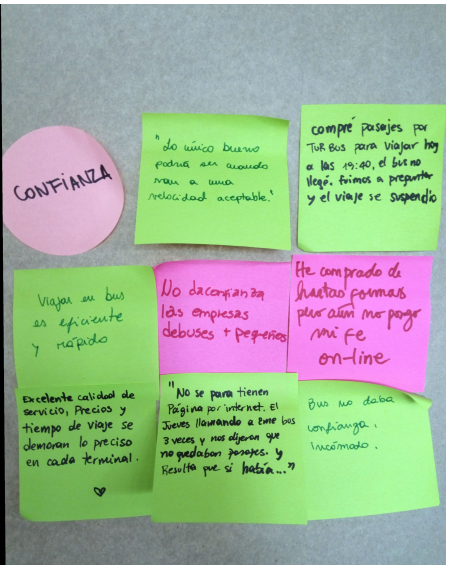 CONFIANZA
"Lo único bueno
podría ser cuando
van a una
velocidad aceptable."
compré pasajes por
TUR BUS para viajar hoy
a las 19:40, el bus no
llegó. fuimos a preguntar
y el viaje se suspendio
Viajar en bus
es eficiente
y rápido
No da confianza
las empresas
de buses + pequeñas
He comprado de
hartas formas
pero aún no pongo
mi fe
on-line
Excelente calidad de
servicio, Precios y
tiempo de viaje se
demoran lo preciso
en cada terminal.
"No se para tienen
Página por internet. El
Jueves llamando a eme bus
3 veces y nos dijeron que
no quedaban pasajes. y
Resulta que si había..."
Bus no daba
confianza.
Incómodo.